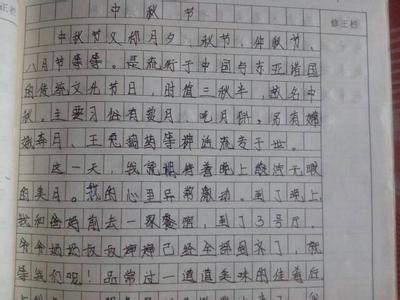 修正栏
中秋节
中秋节又称月夕、秋节、仲秋节、
八月节等等。是流行于中国与东亚诸国
的传统文化节日,时值三秋半,故名中
秋。主要习俗有赏月、吃月饼,另有嫦
娥奔月、玉兔捣药等神话流传于世。
这一天,我就期待着晚上皎洁无暇
的美月。我的心里异常激动。到了晚上
我和爸妈前去一家餐馆,到了3号厅。
爷爷奶奶叔叔婶婶已经全部到齐了,就
等我们呢!品尝过一道道美味的佳肴后